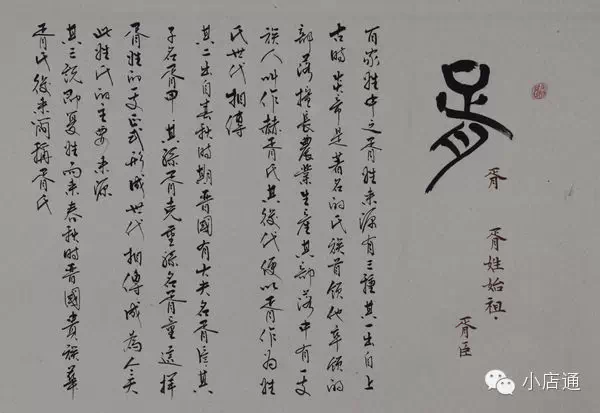 胥
胥 胥姓始祖:
胥臣
百家姓中之胥姓来源有三種其一出自上
古時炎帝是著名的氏族首领他率领的
部落擅長農業生產其部落中有一支
族人叫作赫胥氏其後代便以胥作为姓
氏世代相傳
其二出自春秋時期晋國有大夫名胥臣其
子名胥甲其孫胥克重孫名胥童這样
胥姓的一支正式形成世代相傳成為今天
此姓氏的主要来源
其三説即夏姓而来春秋時晋國貴族華
胥氏後来简稱胥氏
小店通